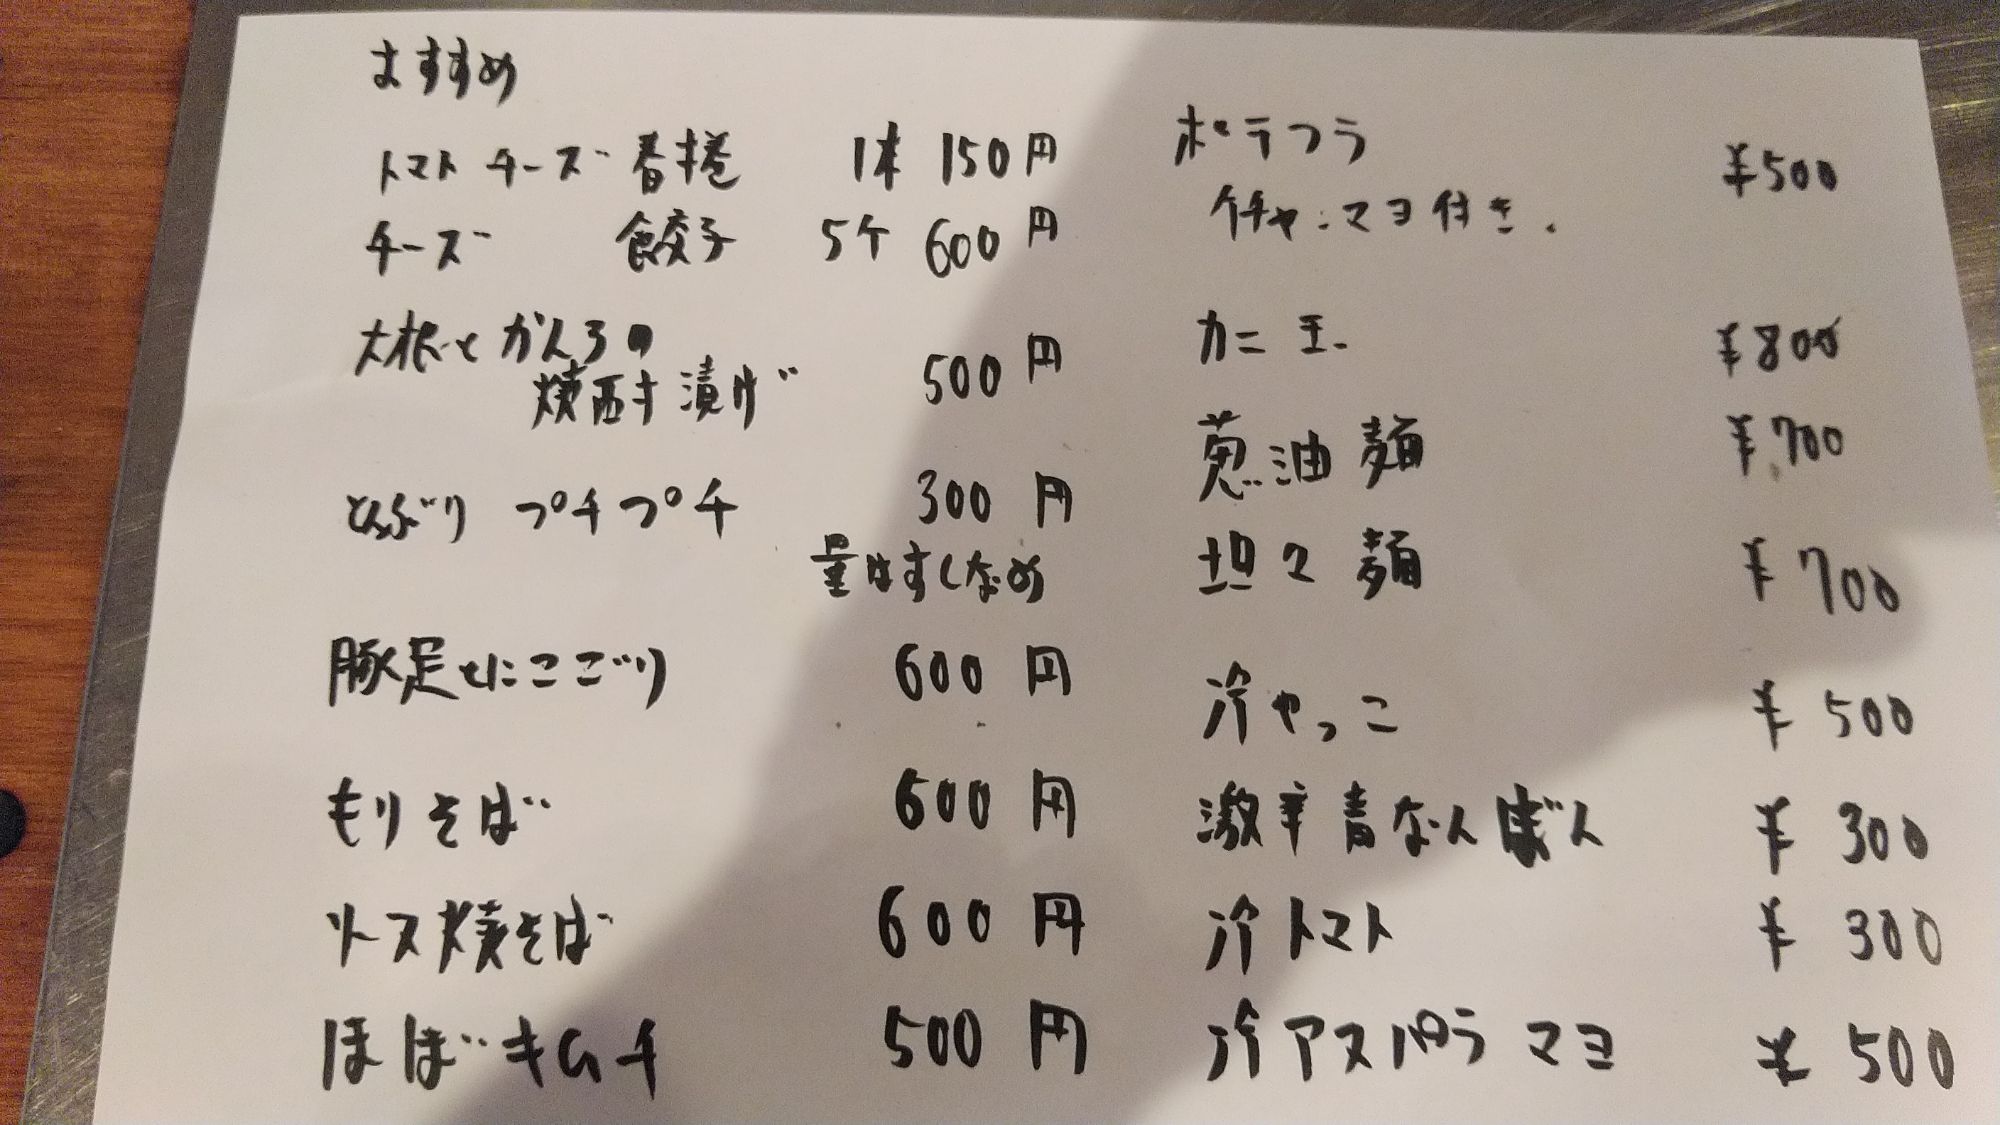 おすすめ
トマトチーズ春巻 1本 150円
チーズ 餃子 5ケ 600円
大根とかんろの
焼酎漬け 500円
とんぶり プチプチ 300円
量はすくなめ
豚足とにこごり 600円
もりそば 600円
ソース焼そば 600円
ほぼキムチ 500円
ポテフラ ¥500
ケチャ・マヨ付き.
カニ玉 ¥800
葱油麺 ¥700
坦々麺 ¥700
冷やっこ ¥500
激辛青なんばん ¥300
冷トマト ¥300
冷アスパラマヨ ¥500